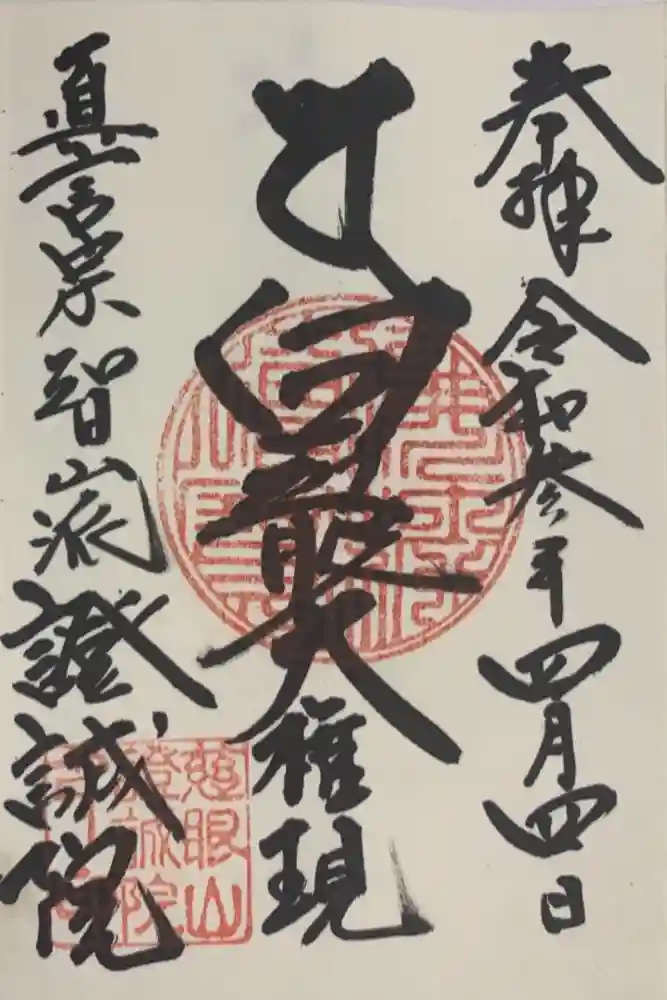 奉拝 令和参年四月四日
権現
真言宗智山派 證誠院
慈眼山
證誠院